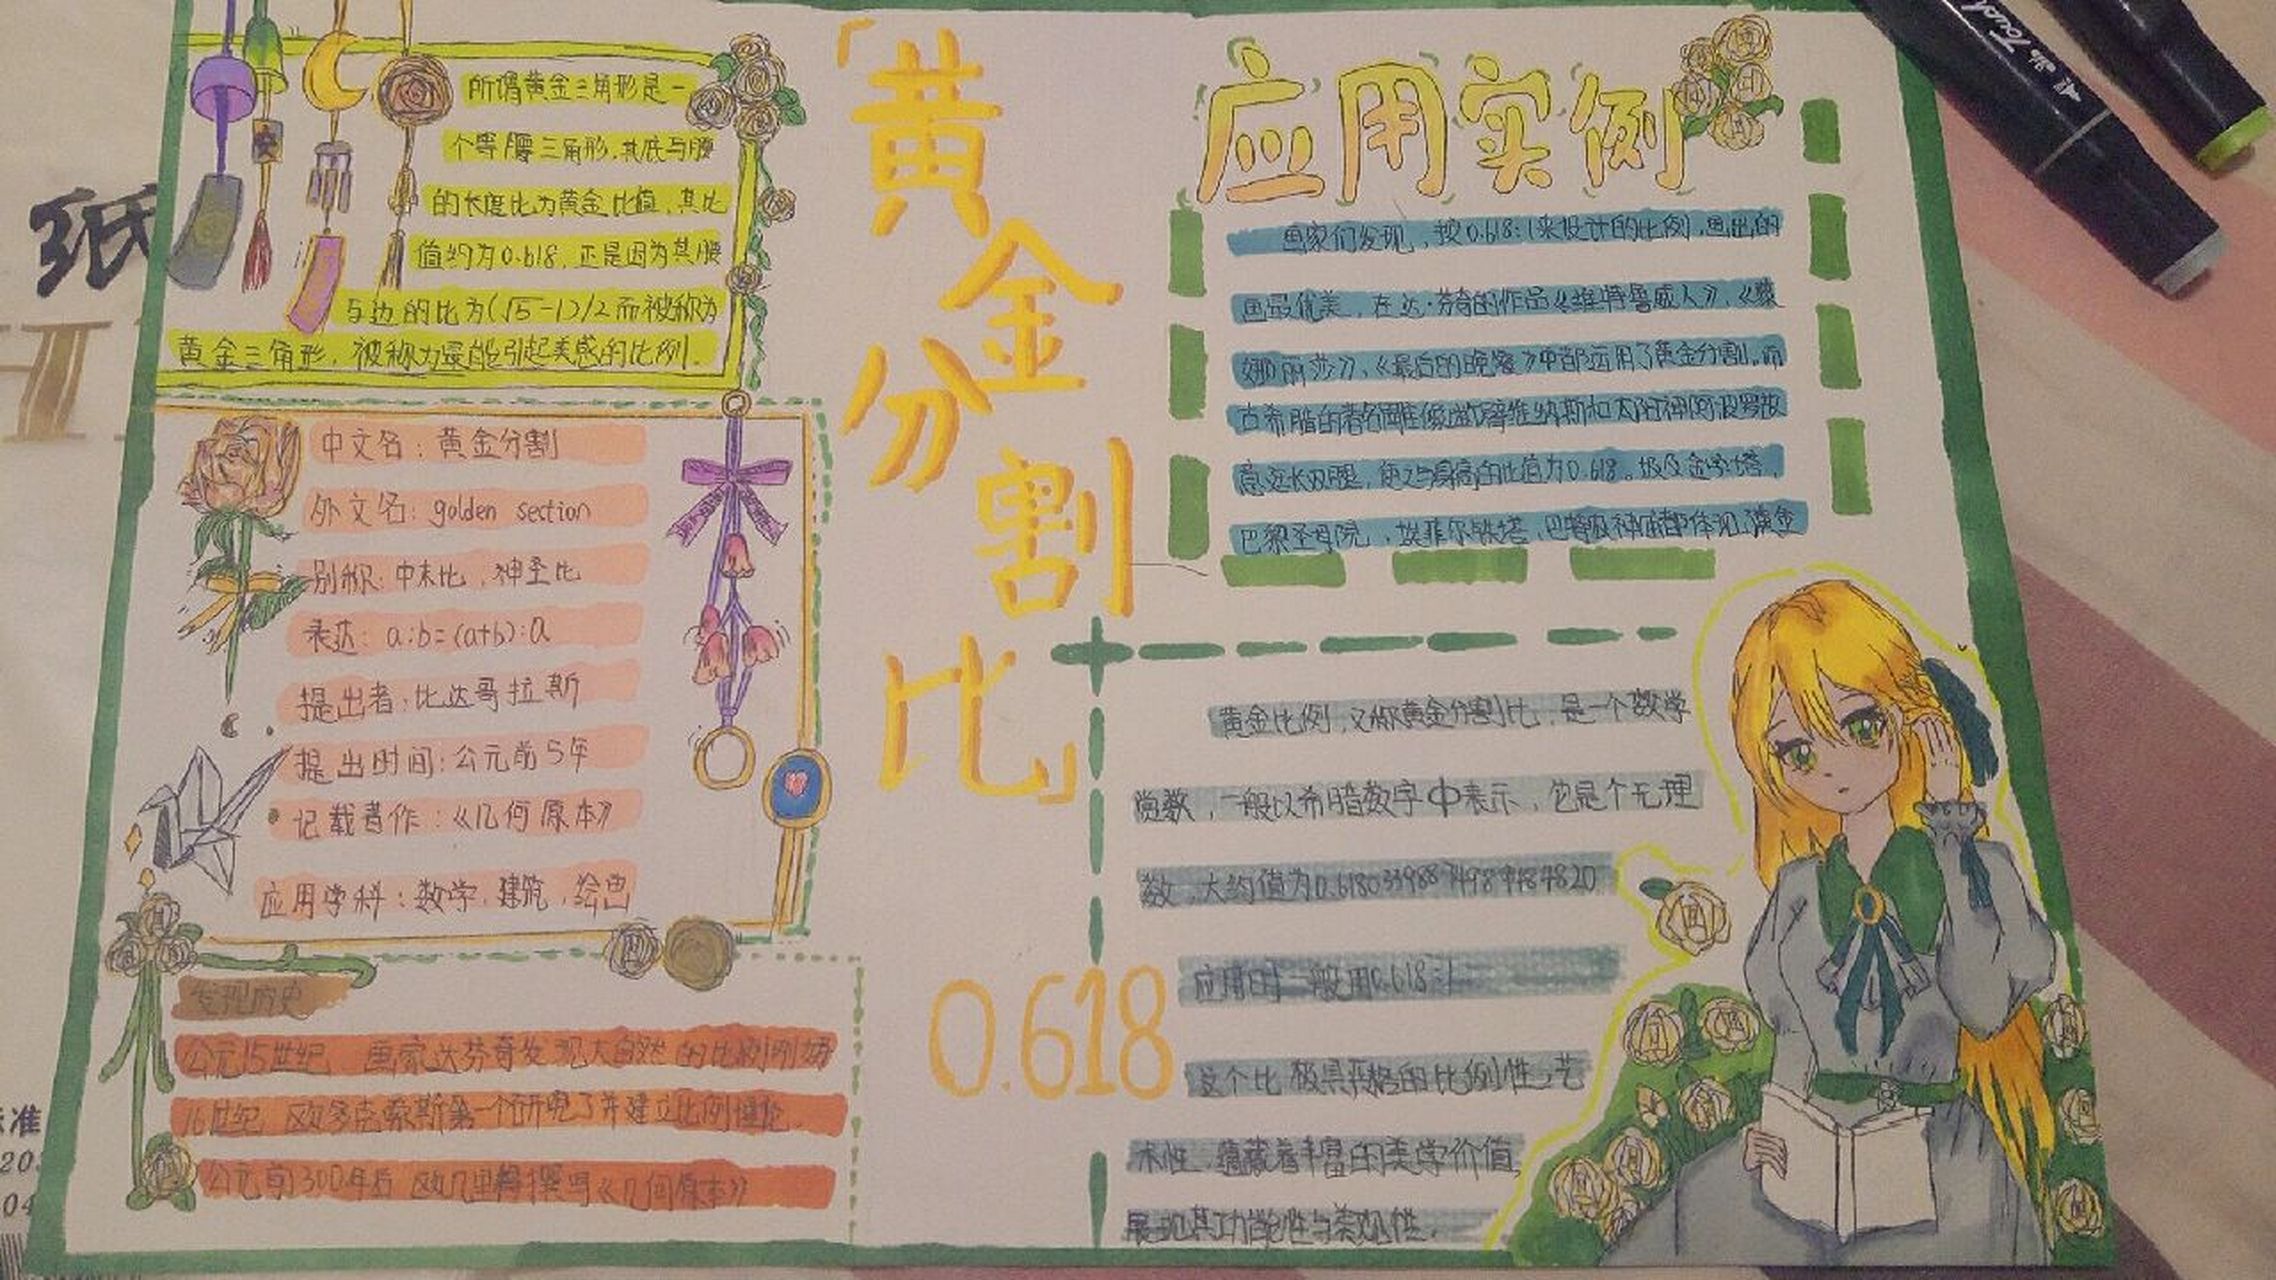 所谓黄金三角形是一
个等腰三角形，其底与腰
的长度比为黄金比值，其比
值约为0.618，正是因为其腰
与边的比为(√5-1)/2而被称为
黄金三角形，被称为最能引起美感的比例。
中文名：黄金分割
外文名：golden section
别称：中末比，神圣比
表达：a:b=(a+b):a
提出者：比达哥拉斯
提出时间：公元前5年
记载著作：《几何原本》
应用学科：数学，建筑，绘画
发现历史
公元15世纪 画家达芬奇发现大自然的比例刚好
16世纪 欧多克索斯第一个研究了并建立比例理论。
公元前300年后 欧几里得撰写《几何原本》
「黄金分割比」
0.618
应用实例
画家们发现，按0.618:1来设计的比例，画出的
画最优美，在达·芬奇的作品《维特鲁威人》，《蒙
娜丽莎》，《最后的晚餐》中都运用了黄金分割。而
古希腊的著名雕像断臂维纳斯和太阳神阿波罗故
意延长双腿，使之与身高的比值为0.618。埃及金字塔，
巴黎圣母院，埃菲尔铁塔，巴特农神庙都体现黄金
黄金比例，又称黄金分割比，是一个数学
常数，一般以希腊数字中表示，它是个无理
数，大约值为0.61803398874989484820
应用时一般用0.618:1
这个比极具严格的比例性，艺
术性，蕴藏着丰富的美学价值
展现其功能性与美观性。
纸
标准
04
Touch